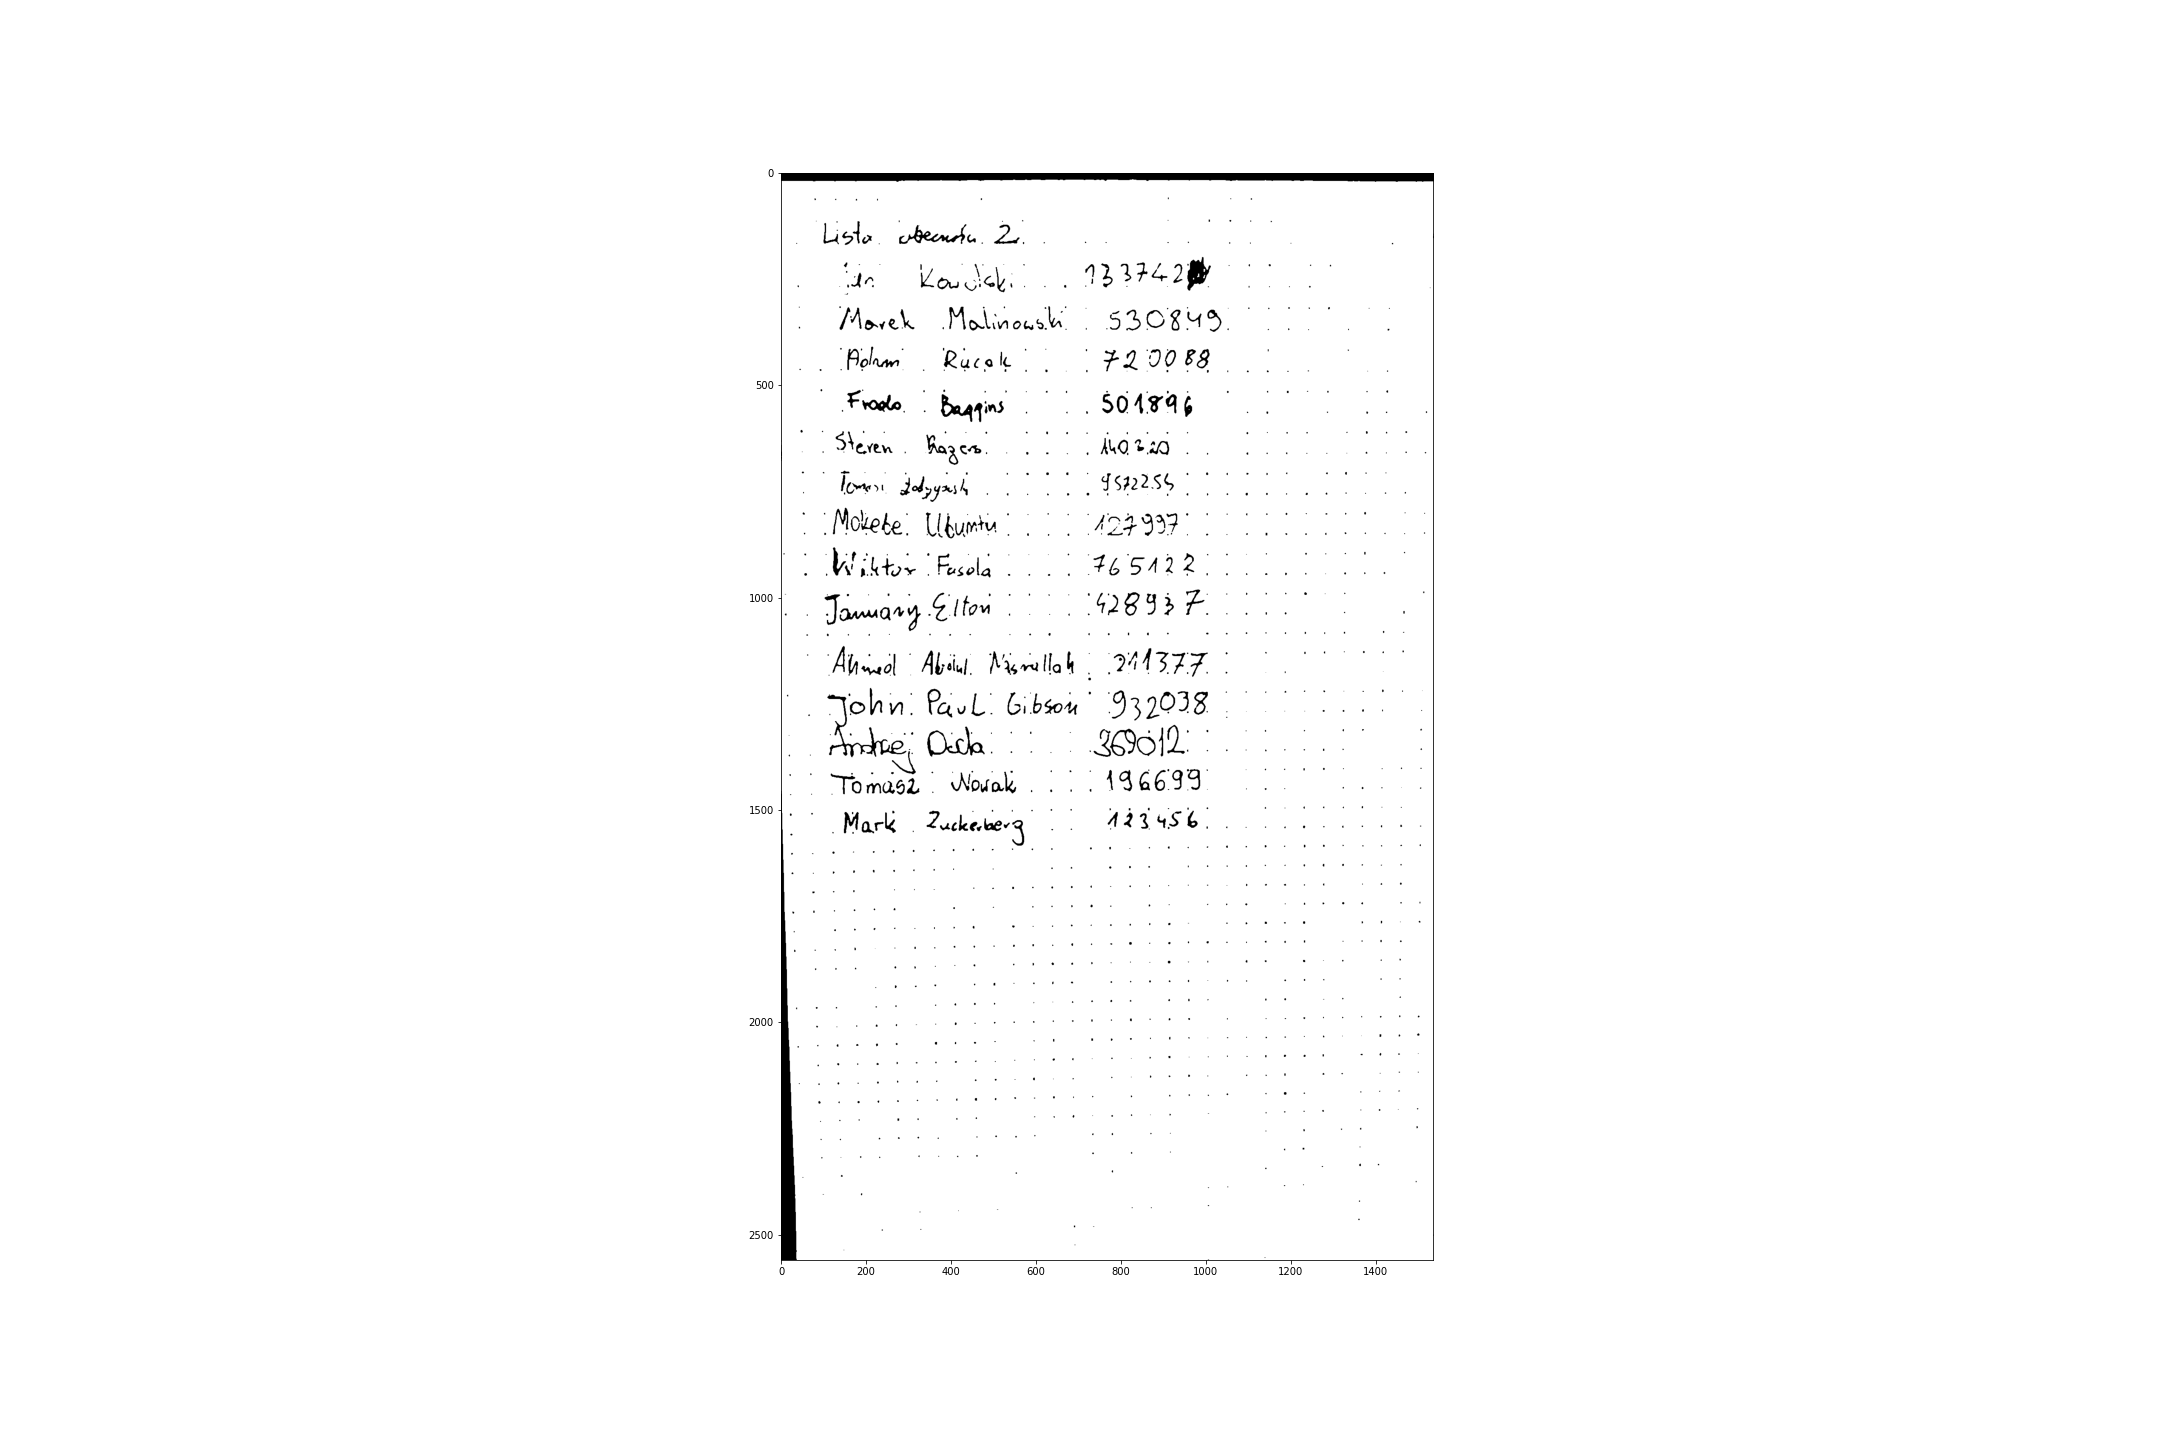 Lista obecności 2.
Jan Kowalski 133742
Marek Malinowski 530849
Adam Rucok 720088
Frodo Baggins 501896
Steven Rogers 140320
9572255
Mokebe Ubuntu 127997
Wiktor Fasola 765122
January Elton 428937
Ahmed Abdul Nasrullah 211377
John Paul Gibson 932038
Andrzej Duda 369012
Tomasz Nowak 196699
Mark Zuckerberg 123456
0
500
1000
1500
2000
2500
0 200 400 600 800 1000 1200 1400